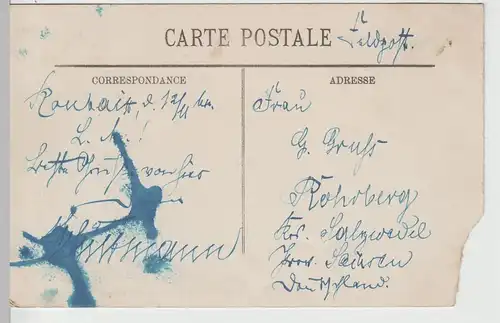 CARTE POSTALE
Feldpost.
CORRESPONDANCE
Roubaix, d. 12/11
L. A.!
Beste Grüße von hier
Wüllmann
ADRESSE
Frau
G. Gruß
Rohrberg
Krs. Salzwedel
Prov. Sachsen
Deutschland.